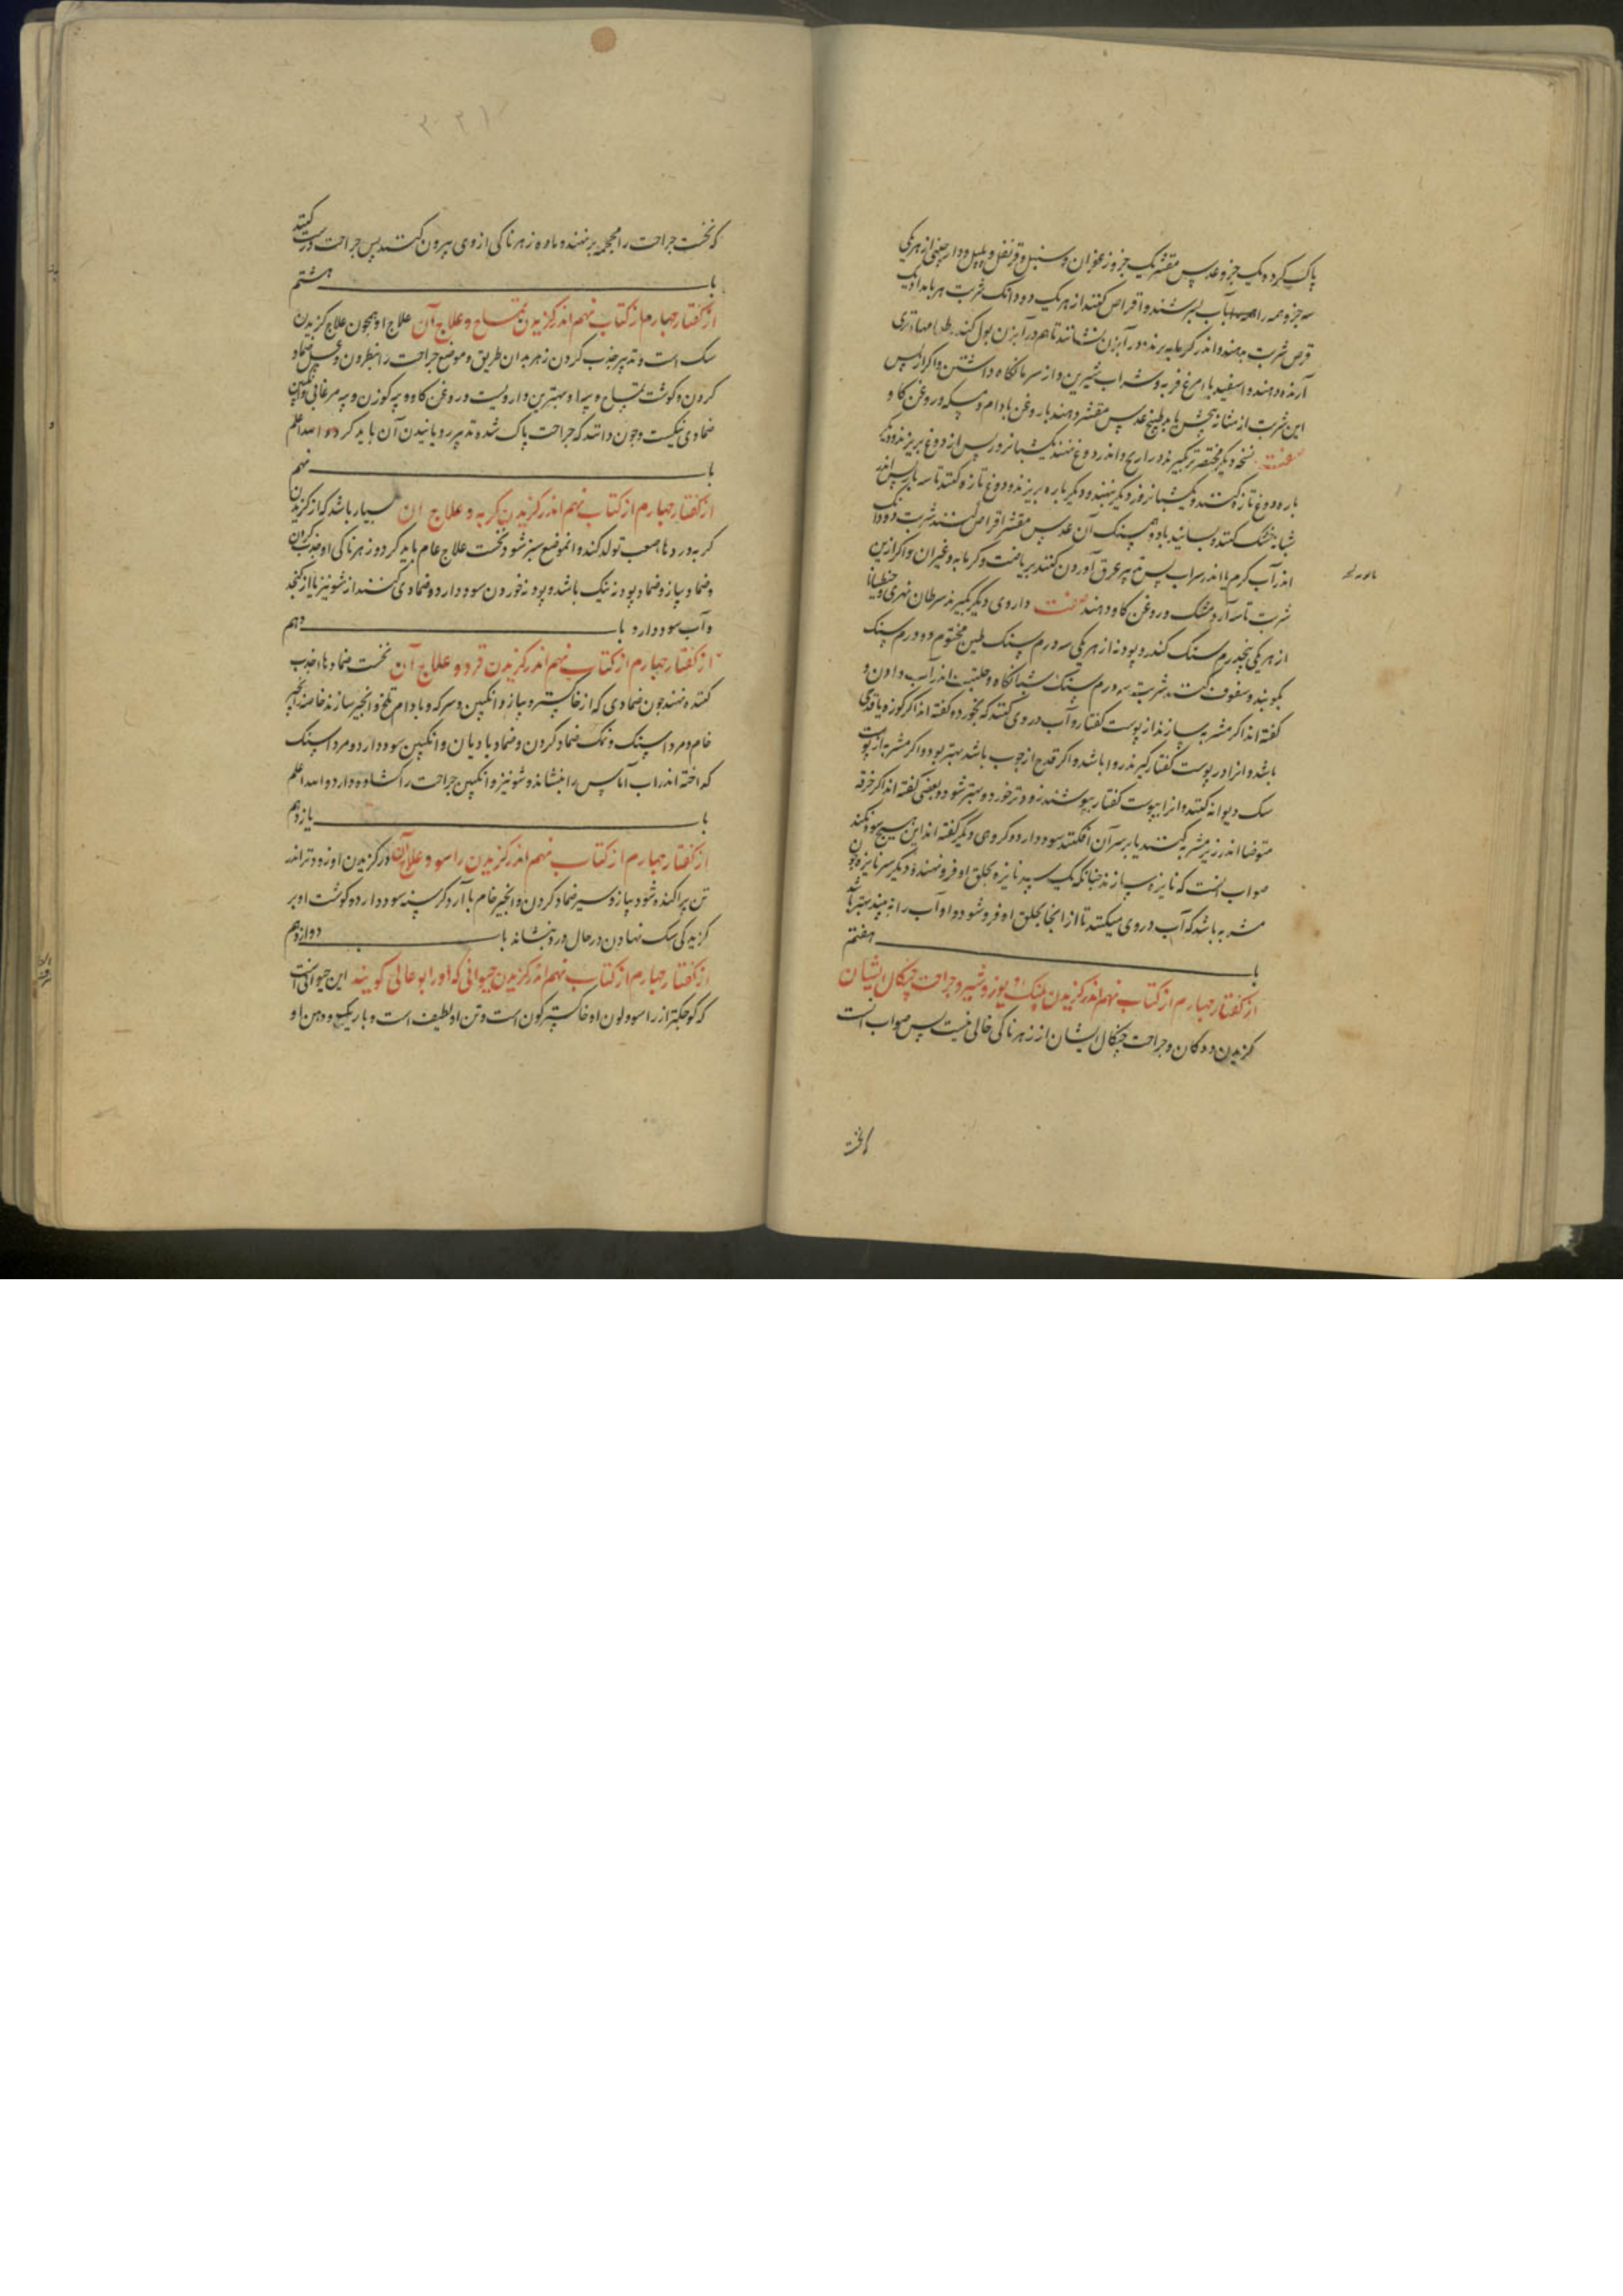 پاک کرده یک جزو عدس مقشر یک جزو زعفران و سنبل و قرنفل و پلپل و دارچینی از هر یکی
سه جزو همه را بآب بسرشند و اقراص کنند از هر یک دو دانک شربت هر بامداد یک
قرص شربت بدهند و اندر گرمابه برند و در آبزن بنشانند تا هم در آبزن بول کند
آرنده دهند و اسفیدبا مرغ فربه و شراب شیرین و از سرما نگاه داشتن و اگر از پس
این شربت از مثانه بجش یابد طبیخ عدس مقشر دهند با روغن بادام و مسکه و روغن کاو
صفت نسخه دیگر مختصرتر بگیرند ذراریح و اندر دوغ نهند یک شبانروز پس از دوغ بریزند و دیگر
باره دوغ تازه کنند و یک شبانروز دیگر بنهند و دیگر باره بریزند و دوغ تازه کنند تا سه بار پس اندر
سایه خشک کنند و بسایند با دو هم سنک آن عدس مقشر اقراص کنند شربت دو دانک
اندر آب گرم یا اندر شراب پس تدبیر عرق آوردن کنند بریاضت و گرمابه و غیر آن و اگر ازین
شربت تاسه آرد مشک و روغن کاو دهند صفت داروی دیگر بگیرند سرطان نهری و جنطیانا
از هر یکی پنجدرم سنگ کندر و پودنه از هر یکی سه درم سنک طین مختوم دو درم سنک
بکوبند و سفوف کنند شربت سه درم سنک شبانگاه و حلتیت اندر آب دادن و
گفته اند اکر مشربه سازند از پوست کفتار و آب در وی کنند که بخورد گفته اند اکر کوزه یا قدحی
باشد و انرا در پوست کفتار گیرند روا باشد و اکر قدح از چوب باشد بهتر بود و اکر مشربه از پوست
سک دیوانه کنند و انرا بپوست کفتار بپوشند زودتر خورد و بهتر شود و بعضی گفته اند اکر خرقه
متوضا اندر زیر مشربه کنند یا بر سر آن افکنند سود دارد و گروهی دیگر گفته اند این هیچ سود نکند
صواب انست که نایزه سازند چنانکه یک سر نایزه بحلق او فرو نهند و دیگر سر نایزه چون
مشربه باشد که آب در وی میکنند تا از انجا بحلق او فرو شود و او آب را نه بیند بهتر باشد
باب هفتم
از گفتار چهارم از کتاب نهم اندر گزیدن پلنک و یوز و شیر و جراحت چنکال ایشان
گزیدن ددکان و جراحت چنکال ایشان از زهرناکی خالی نیست پس صواب انست
که نخست
که نخست جراحت را محجمه برنهند و ماده زهرناکی از وی بیرون کشند پس جراحت درست کنند
باب هشتم
از گفتار چهارم از کتاب نهم اندر گزیدن تمساح و علاج آن علاج او همچون علاج گزیدن
سک است و تدبیر جذب کردن زهر بدان طریق و موضع جراحت را بنطرون و عسل ضماد
کردن و گوشت تمساح و پیه او بهترین داروییست و روغن کاو و پیه کوزن و پیه مرغابی و انکبین
ضمادی نیکست و چون دانند که جراحت پاک شد تدبیر رویانیدن آن باید کرد و الله اعلم
باب نهم
از گفتار چهارم از کتاب نهم اندر گزیدن گربه و علاج آن بسیار باشد که از گزیدن
گربه دردها صعب تولد کند و انموضع سبز شود و نخست علاج عام باید کرد و زهرناکی او جذب کردن
و ضماد پیاز و ضماد پودنه نیک باشد و پودنه خوردن سود دارد و ضمادی کنند از شونیز یا از کنجد
و آب سود دارد باب دهم
از گفتار چهارم از کتاب نهم اندر گزیدن قرد و علاج آن نخست ضمادها جذب
کننده نهند چون ضمادی که از خاکستر و پیاز و انکبین و سرکه و بادام تلخ و انجیر سازند خاصه انجیر
خام و مرداسنک و نمک ضماد کردن و ضماد بادیان و انکبین سود دارد و مرداسنک
که اخته اندر اب آماس را بنشاند و شونیز و انکبین جراحت را گشاده دارد و الله اعلم
باب یازدهم
از گفتار چهارم از کتاب نهم اندر گزیدن راسو و علاج آن درد گزیدن او زودتر اندر
تن پراکنده شود پیاز و سیر ضماد کردن و انجیر خام با آرد کرسنه سود دارد و گوشت او بر
گزیدگی سک نهادن در حال درد بنشاند باب دوازدهم
از گفتار چهارم از کتاب نهم اندر گزیدن حیوانی که اورا بوعالی گویند این حیوانی است
که کوچکتر از راسو و لون او خاکسترگون است و تن او لطیف است و باریک و دهن او